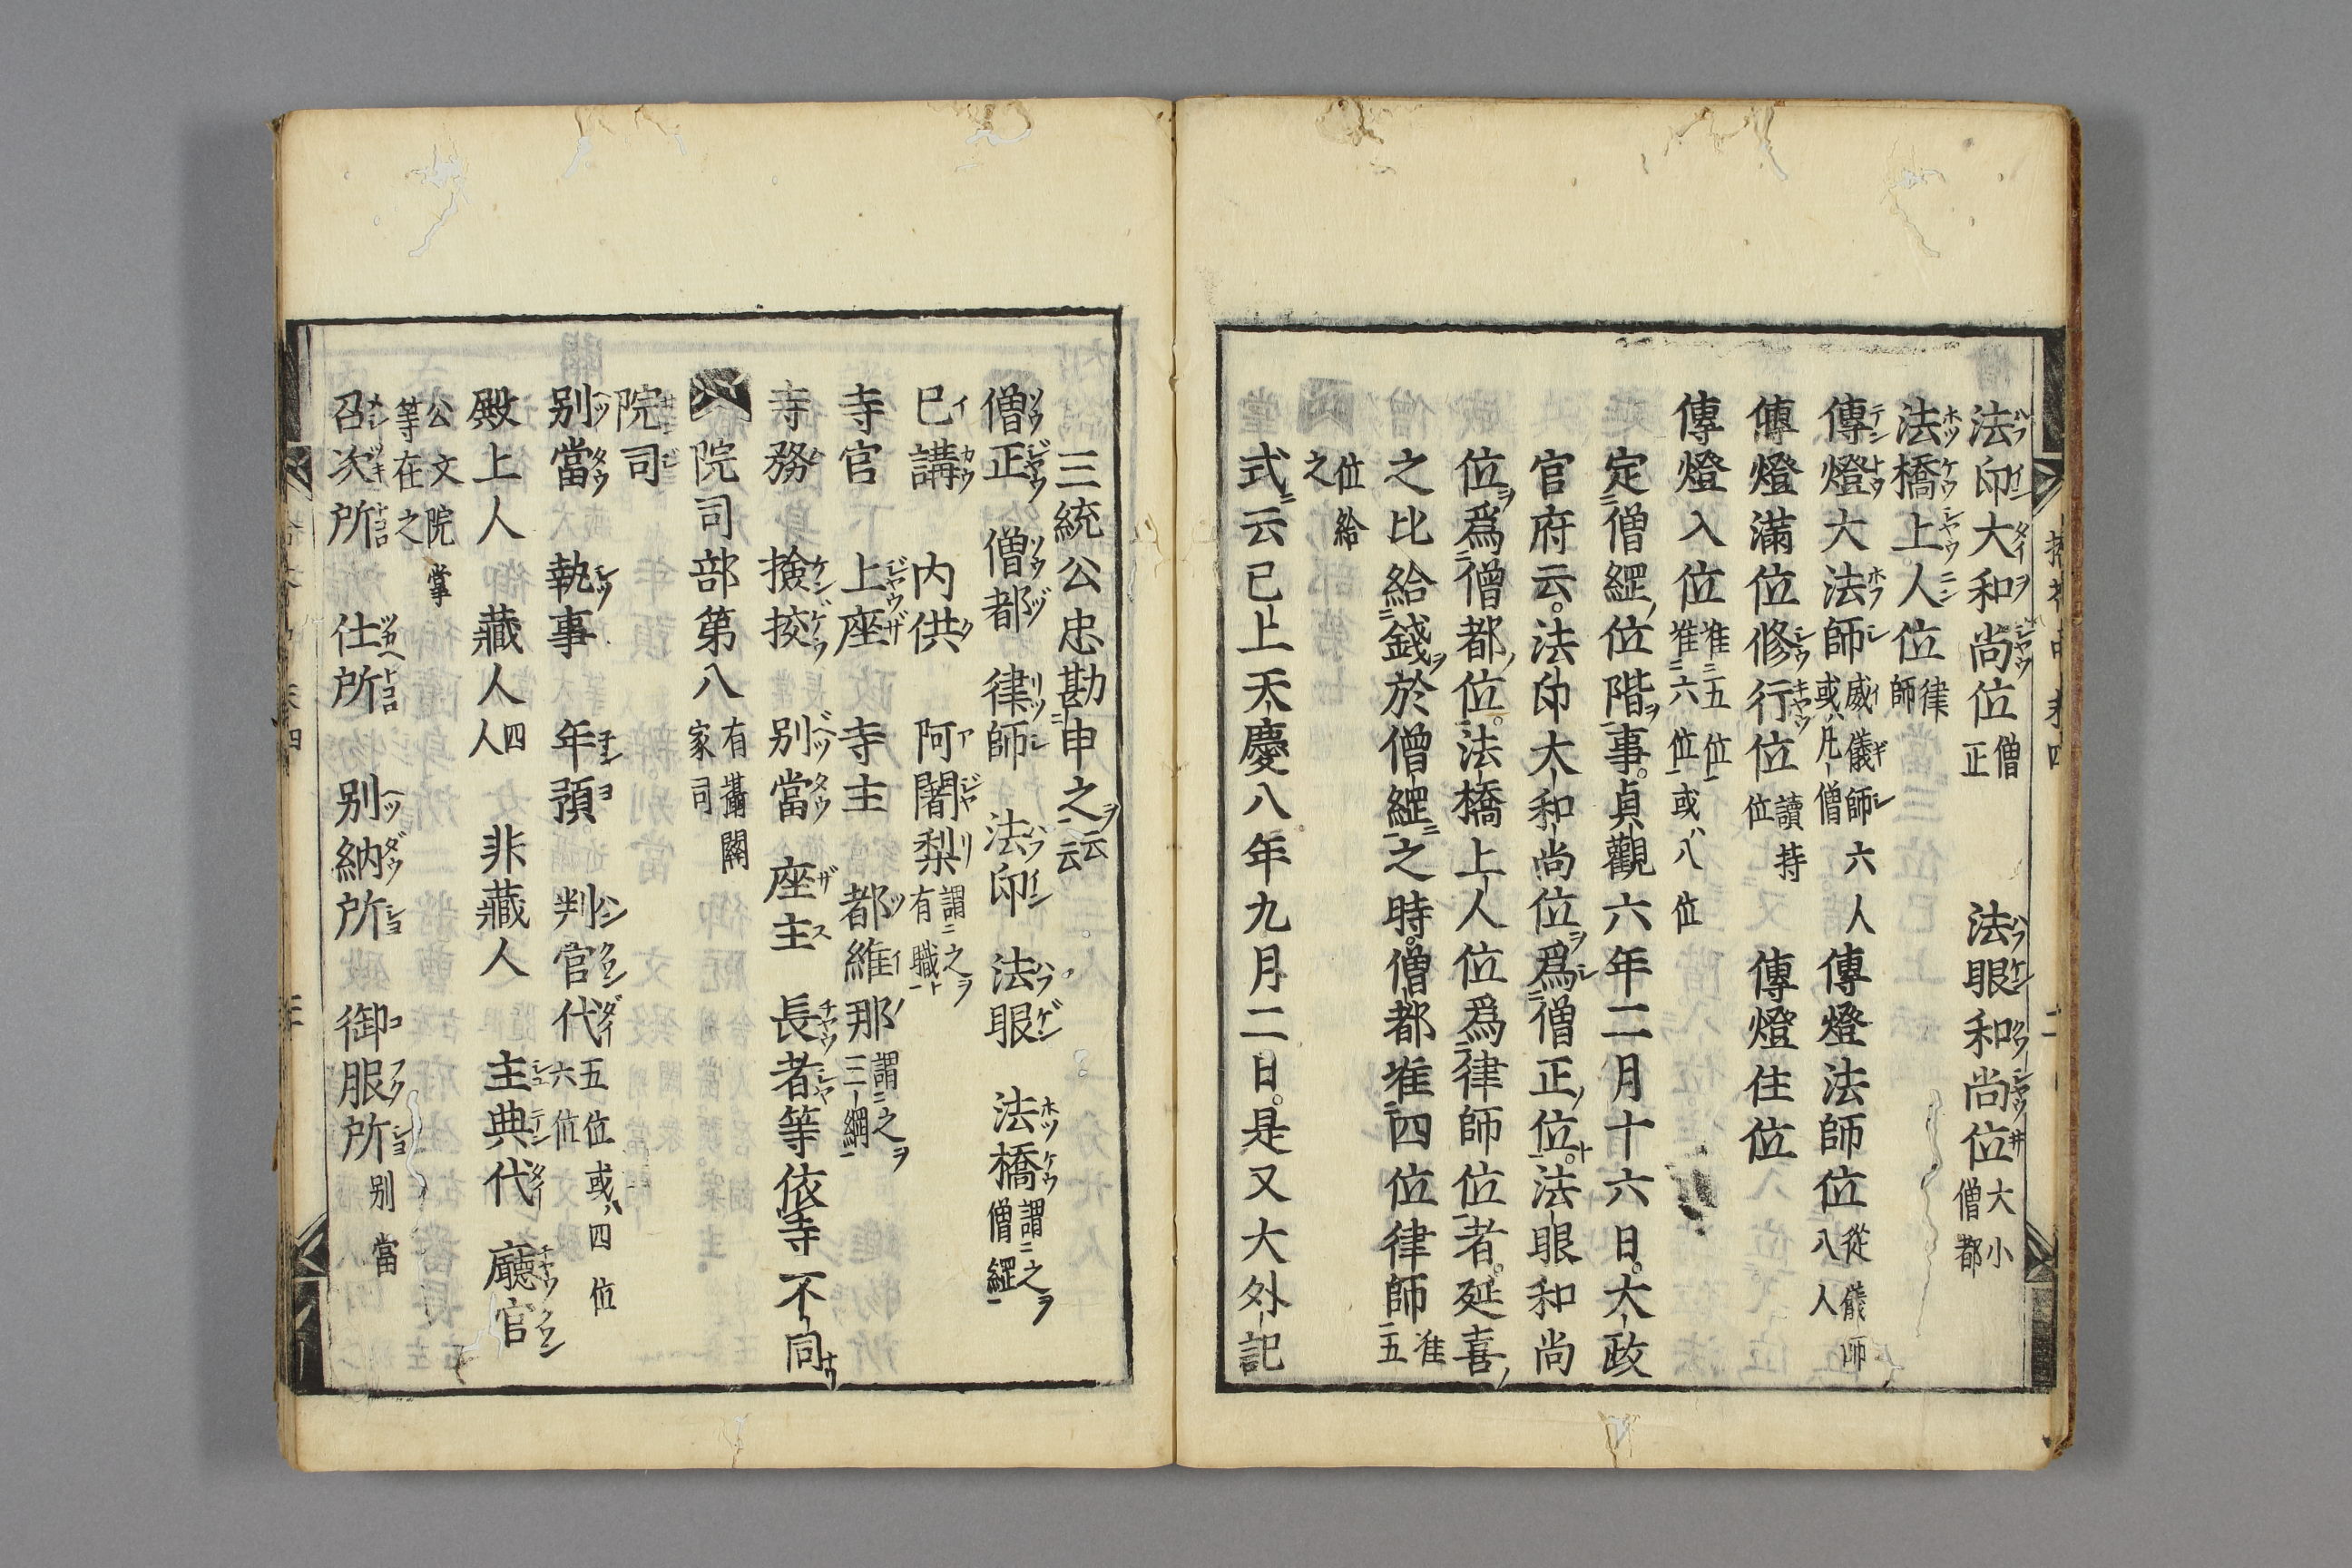 法印大和尚位僧正　法眼和尚位大小僧都
法橋上人位律師
傳燈大法師威儀師六人或凡僧　傳燈法師位從儀師八人
傳燈滿位修行位讀持位　傳燈住位
傳燈入位准五位准六位或八位
定僧綱位階事。貞觀六年二月十六日。太政
官府云。法印大和尚位爲僧正位。法眼和尚
位爲僧都位。法橋上人位爲律師位者。延喜
之比給錢於僧綱之時。僧都准四位律師准五
位給之
式云已上天慶八年九月二日。是又大外記
三統公忠勘申之云云
僧正　僧都　律師　法印　法眼　法橋謂之僧綱
已講　内供　阿闍梨謂之有職
寺官　上座　寺主　都維那謂之三綱
寺務　撿挍　別當　座主　長者等依寺不同
院司部第八有攝關家司
院司
別當　執事　年預　判官代五位或四位六位
公文院掌等在之
殿上人　藏人四人　非藏人　主典代　廳官
召次所　仕所　別納所　御服所別當